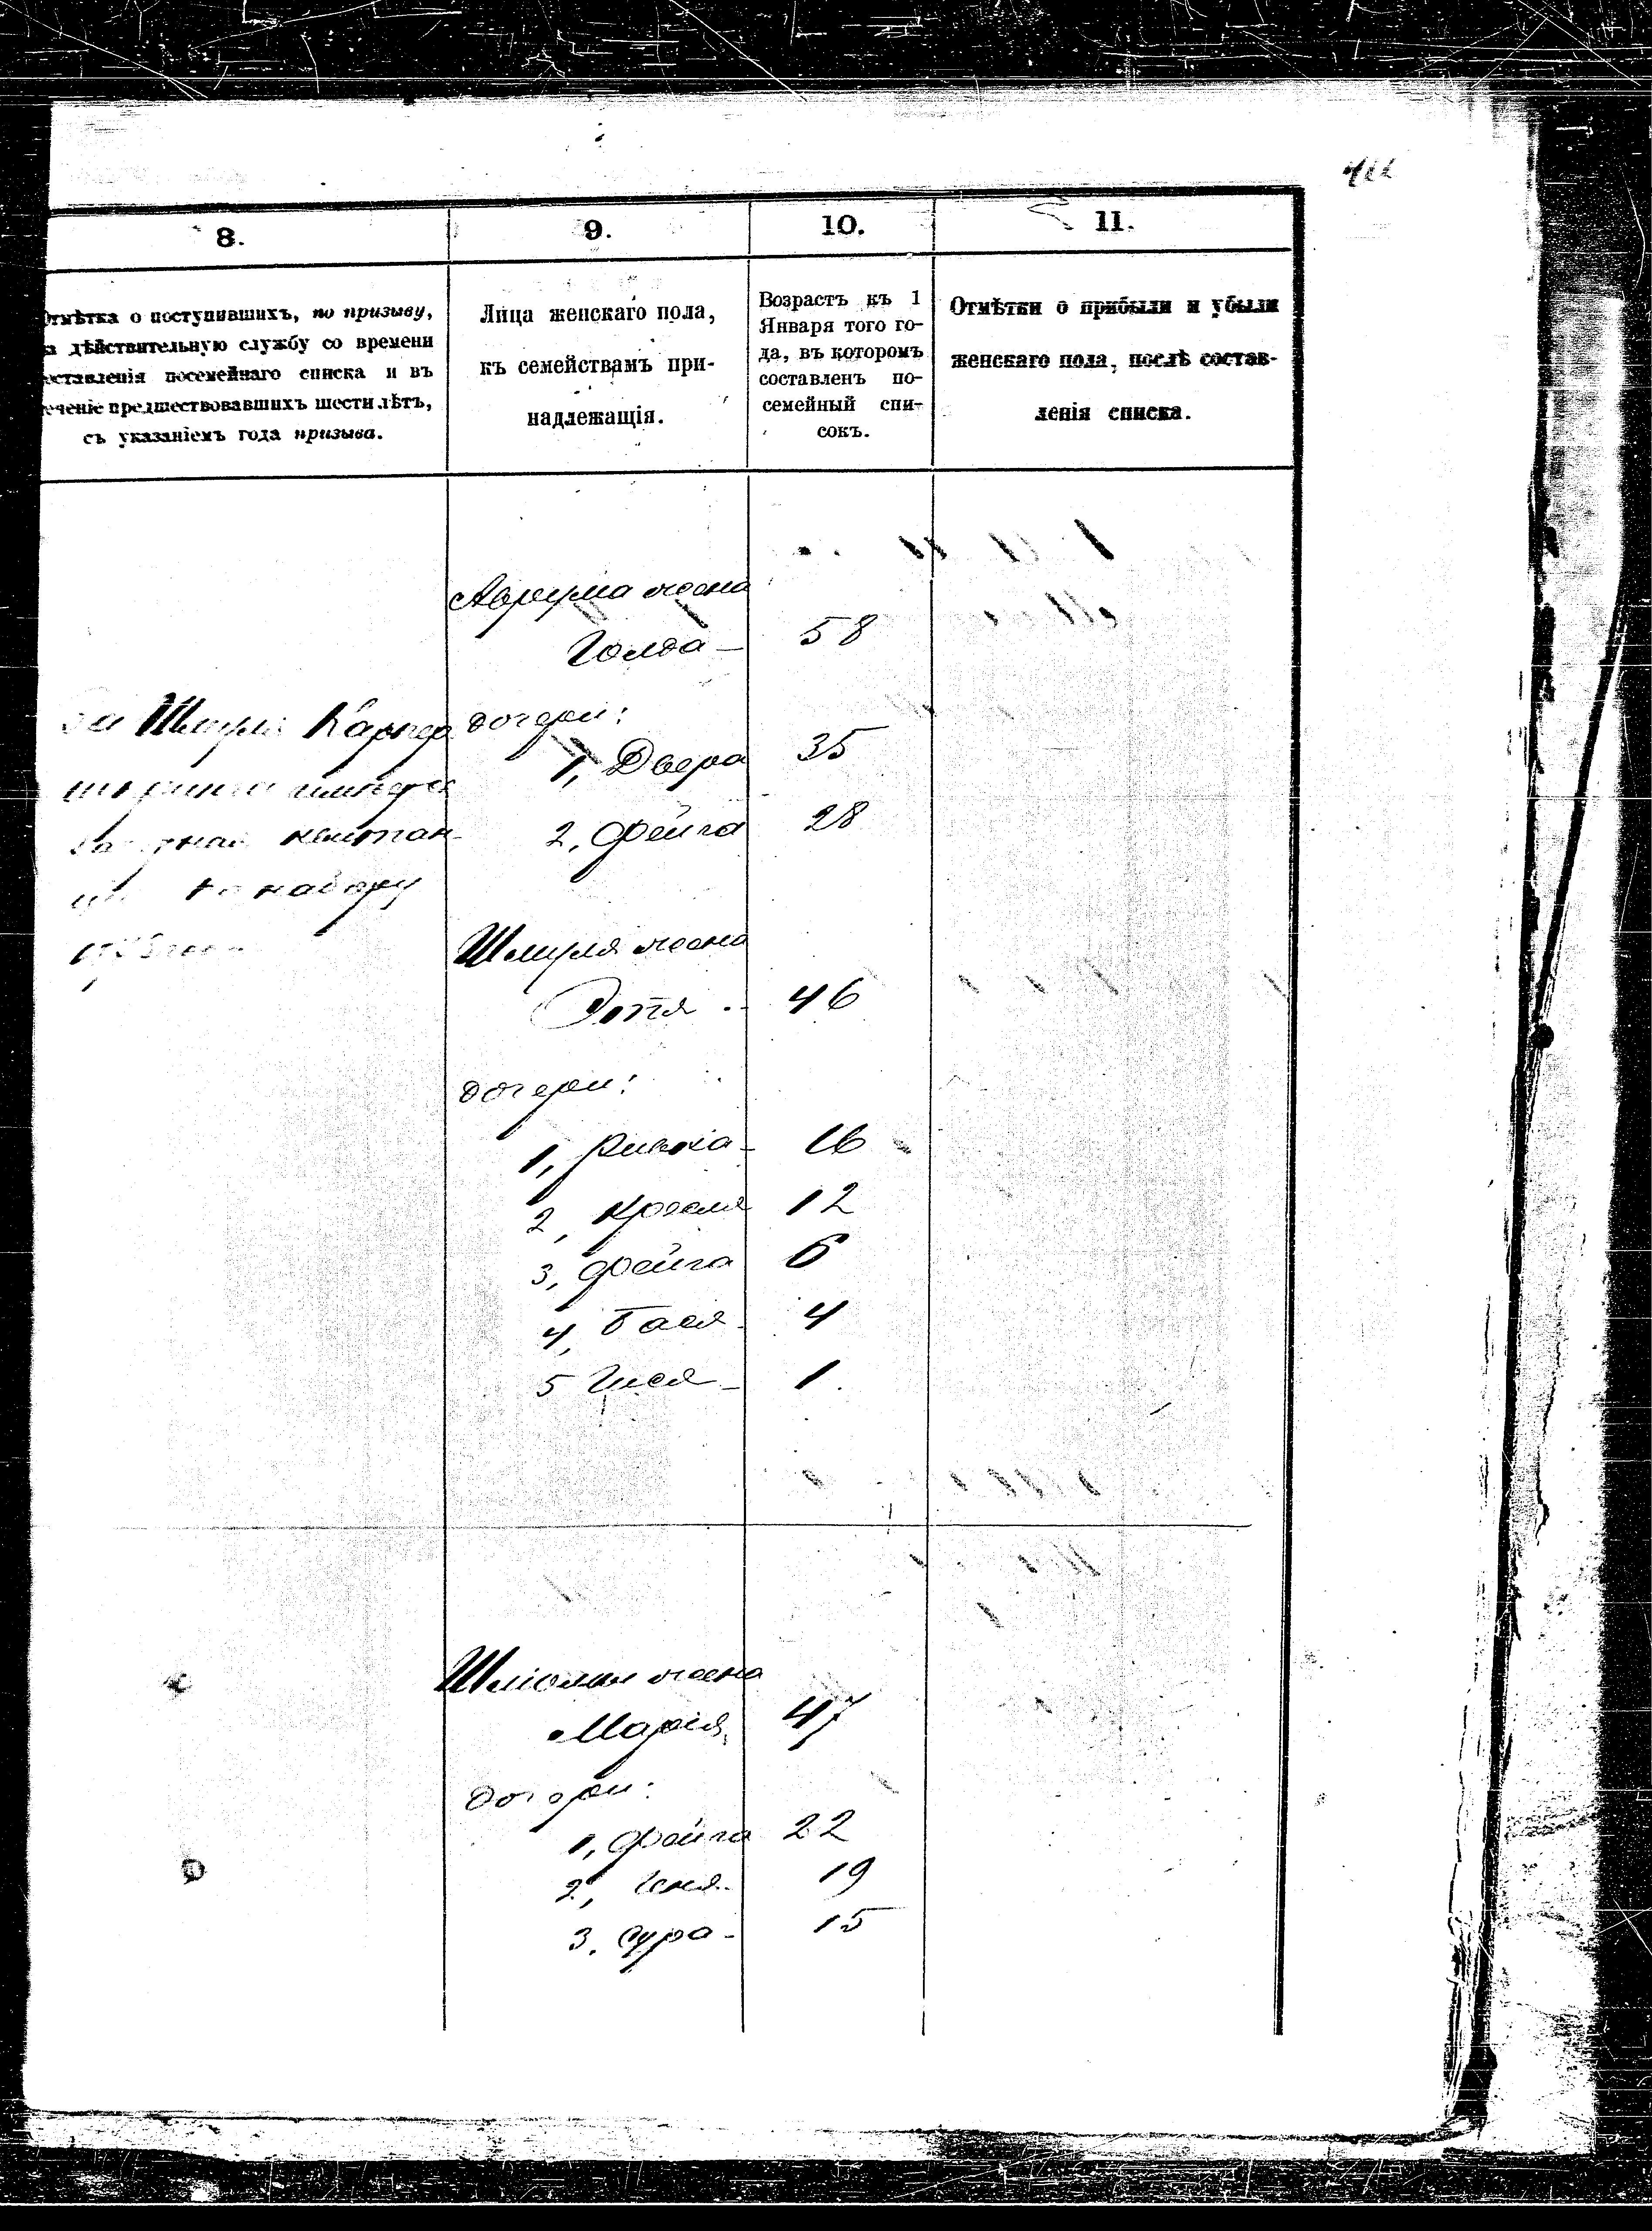 8.
9.
10.
11.
Отмѣтка о поступившихъ, по призыву,
на дѣйствительную службу со времени
составленія посемейнаго списка и въ
теченіе предшествовавшихъ шести лѣтъ,
съ указаніемъ года призыва.
Лица женскаго пола,
къ семействамъ при-
надлежащія.
Возрастъ къ 1
Января того го-
да, въ которомъ
составленъ по-
семейный спи-
сокъ.
Отмѣтки о прибыли и убыли
женскаго пола, послѣ состав-
ленія списка.
Аврума жена
Голда — 58
За Шмуля
дочери:
1, Двера 35
2, Фейга 28
квитан-
набору
Шмуля жена
Этя 46
дочери:
1, Ривка — 16
2, 12
3, Фейга 6
4, Бася 4
5 1
Шліомы жена
Марія 47
дочери:
1, Фейга 22
2, 19
3, Сура — 15